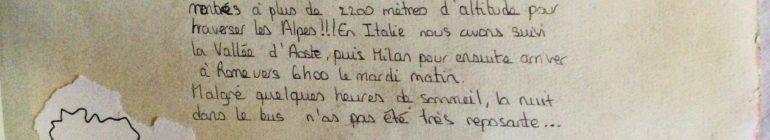 montés à plus de 2200 mètres d'altitude pour
traverser les Alpes!!!En Italie nous avons suivi
la Vallée d'Aoste, puis Milan pour ensuite arriver
à Rome vers 6h00 le mardi matin.
Malgré quelques heures de sommeil, la nuit
dans le bus n'as pas été très reposante...